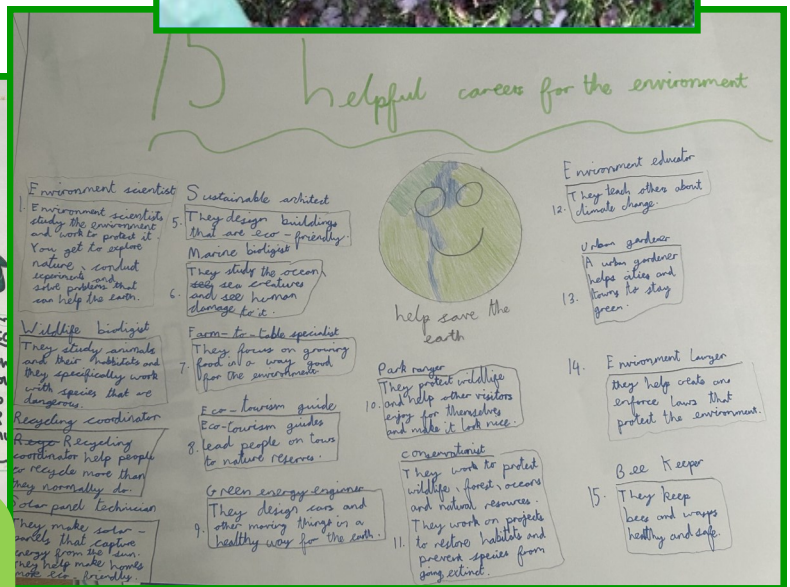 15 helpful careers for the environment
Environment scientist
1. Environment scientists
study the environment
and work to protect it.
You get to explore
nature, conduct
experiments and
solve problems that
can help the earth.
Wildlife bioligist
They study animals
and their habbitats and
they specifically work
with species that are
dangerous.
Recycling coordinator
Recycling
coordinator help people
to recycle more than
they normally do.
Solar panel technician
They make solar-
panels that capture
energy from the sun.
They help make homes
more eco-friendly.
Sustainable architect
5. They design buildings
that are eco-friendly.
Marine bioligist
They study the ocean,
sea creatures
6. and see human
damage to it.
Farm-to-table specialist
7. They focus on growing
food in a way good
for the environment.
Eco-tourism guide
Eco-tourism guides
8. lead people on tours
to nature reserves.
Green energy enginer
They design cars and
9. other moving things in a
healthy way for the earth.
help save the
earth
Park ranger
They protect wildlife
10. and help other visitors
enjoy for themselves
and make it look nice.
conservationist
They work to protect
wildlife, forest, oceans
and natural resources.
They work on projects
11. to restore habitats and
prevent species from
going extinct.
Environment educator
They teach others about
12. climate change.
Urban gardener
A urban gardener
helps cities and
13. towns to stay
green.
14. Enviroment Lawyer
they help create and
enforce laws that
protect the environment.
Bee Keeper
15. They keep
bees and wasps
healthy and safe.